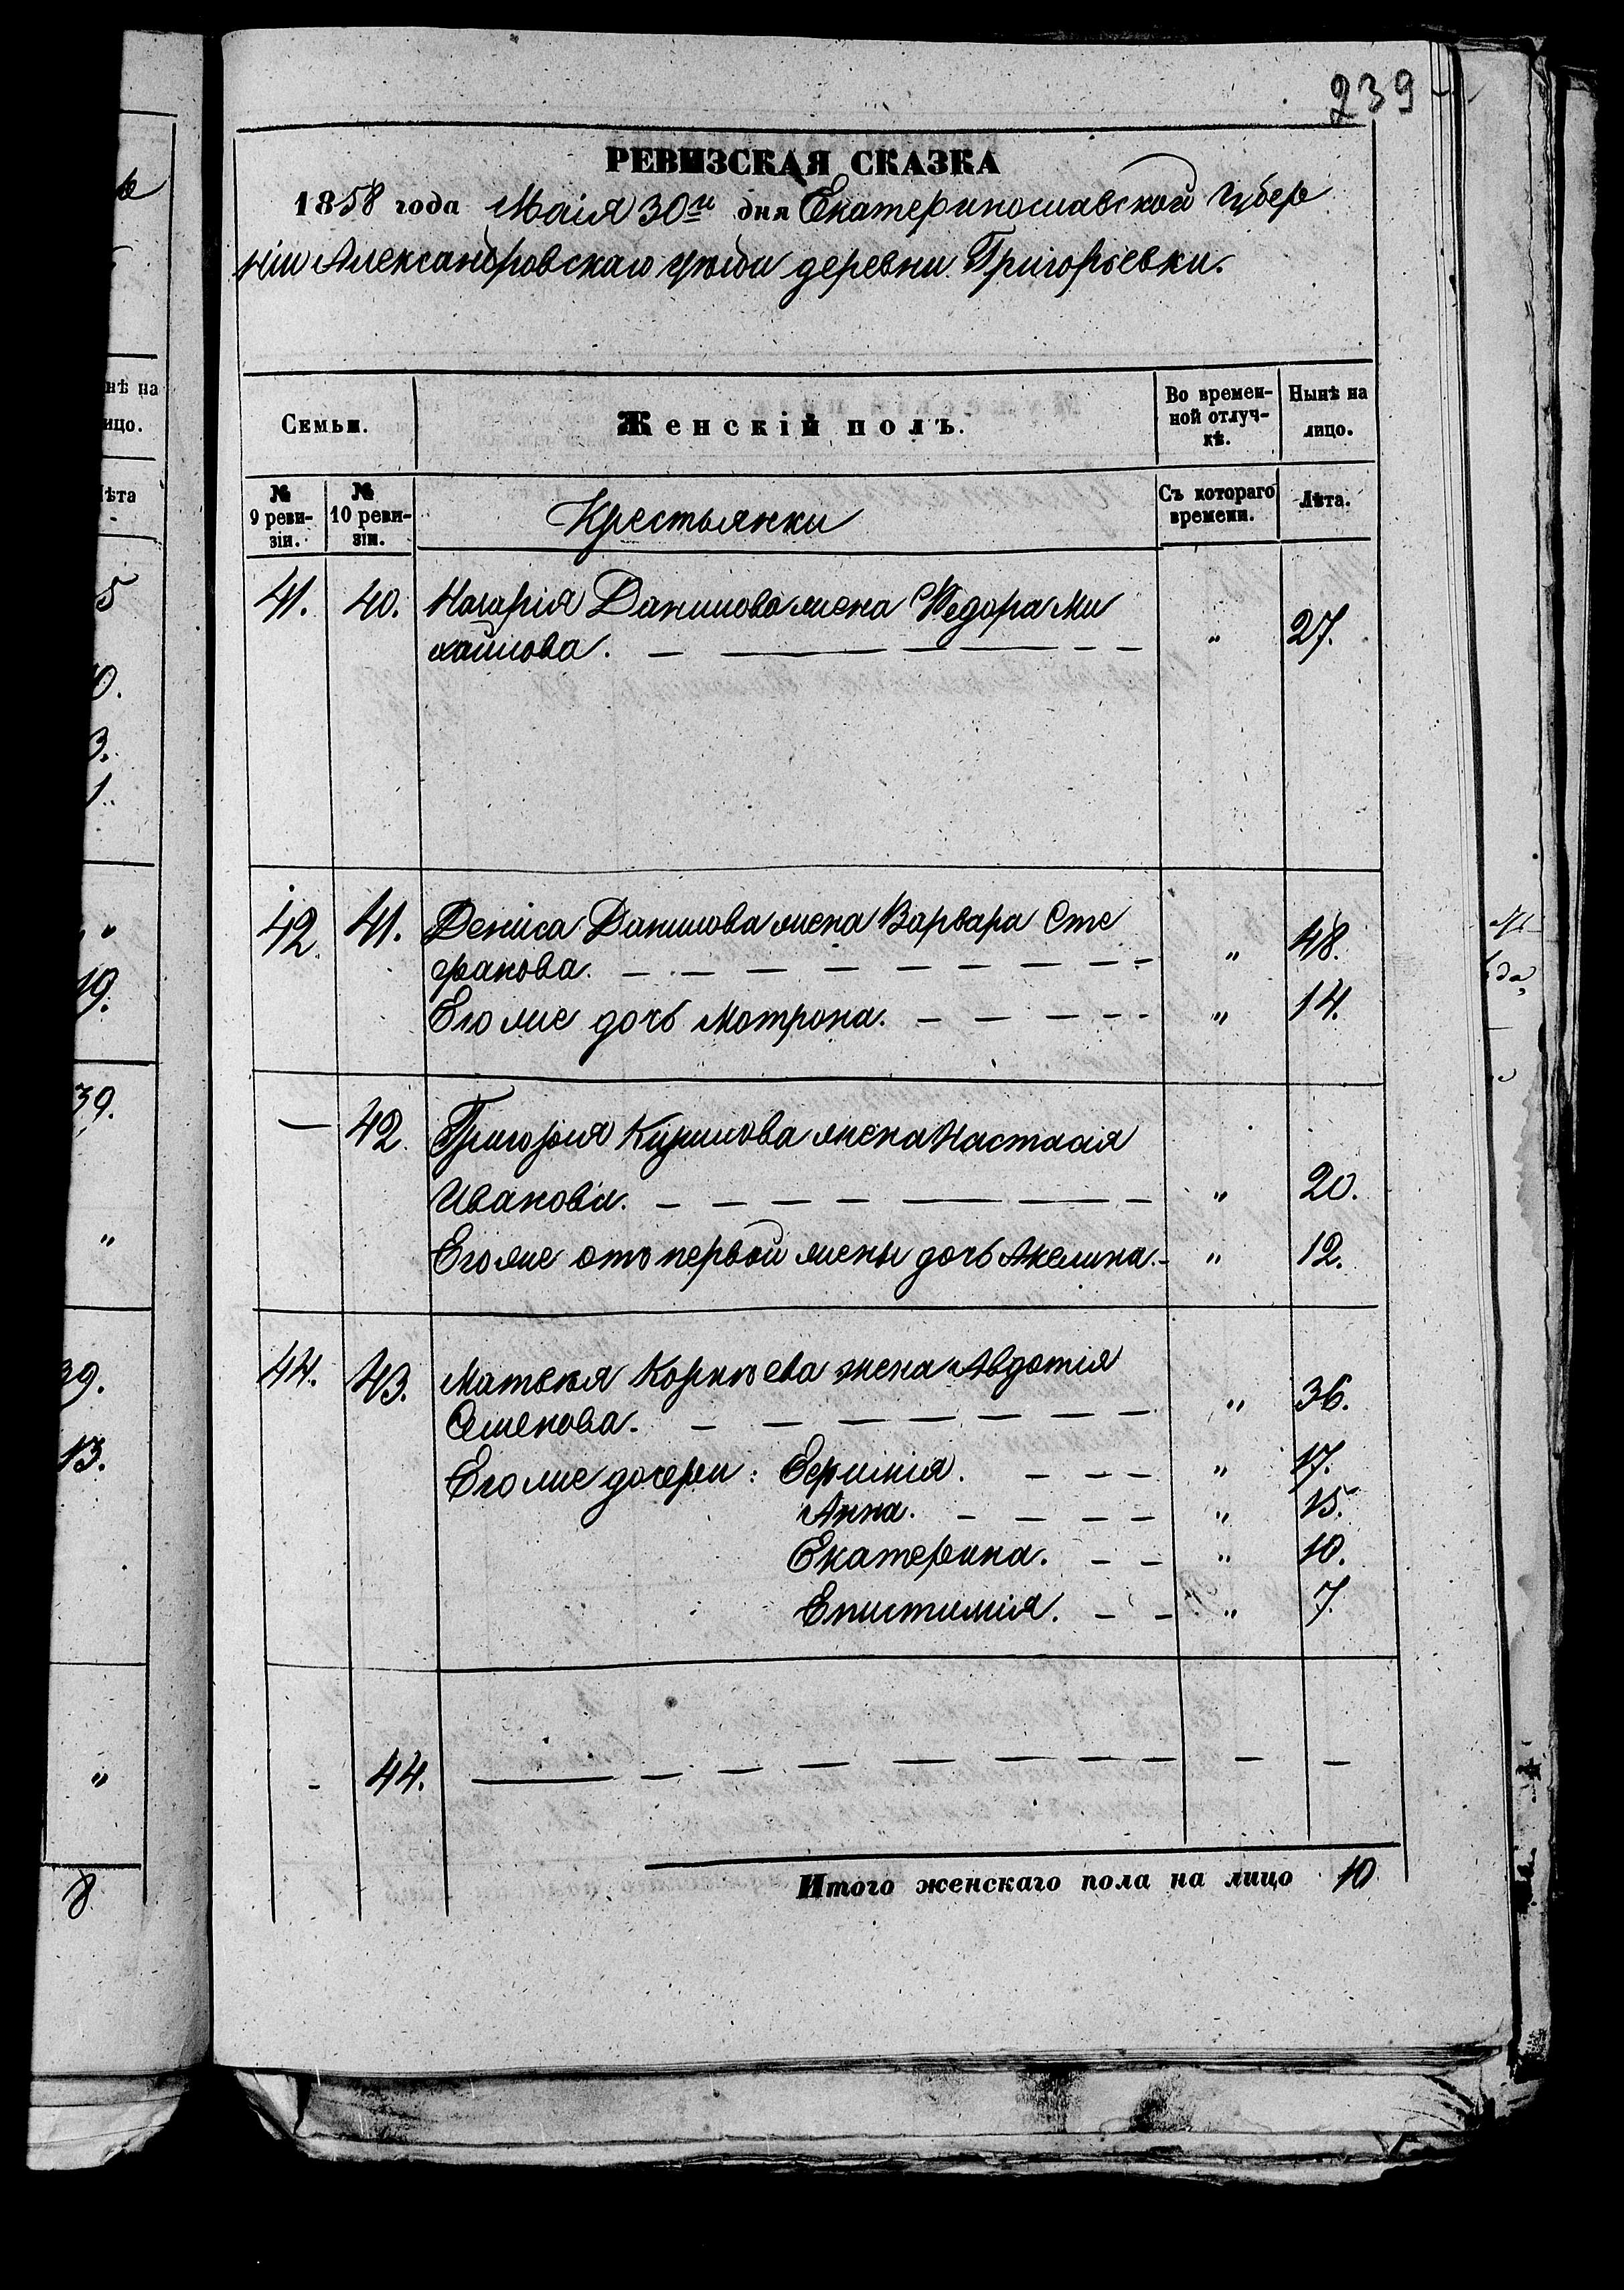 239
РЕВИЗСКАЯ СКАЗКА
1858 года Маія 30го дня Екатеринославской губер
ніи Александровскаго уѣзда деревни Григорьевки.
нѣ на
ицо.
ѣта
5
0.
3.
1.
"
19.
39.
"
39.
13.
"
8
Семьи.
Женскій полъ.
Во времен-
ной отлуч-
кѣ.
Нынѣ на
лицо.
№
9 реви-
зіи.
№
10 реви-
зіи.
Крестьянки
Съ котораго
времени.
Лѣта.
41. 40. Назарія Данилова жена Федора Ми
хайлова. — — — — — — " 27.
42. 41. Дениса Данилова жена Варвара Сте
фанова. — — — — — — — " 48.
Его же дочь Мотрона. — — — — " 14.
— 42. Григорія Кирилова жена Настасія
Иванова. — — — — — — " 20.
Его же отъ первой жены дочь Акелина. — " 12.
44. 43. Матвея Корнѣева жена Авдотія
Семенова. — — — — — — " 36.
Его же дочери: Ефимія. — — — " 17.
Анна. — — — — " 15.
Екатерина. — — " 10.
Епистимія. — — " 7.
- 44. — — — — — — — — —
Итого женскаго пола на лицо 10